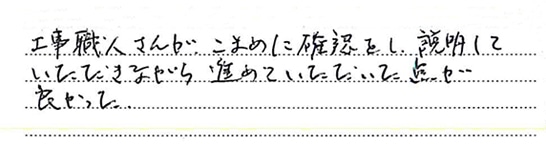 工事職人さんが、こまめに確認をし、説明して
いただきながら進めていただいた点が
良かった.